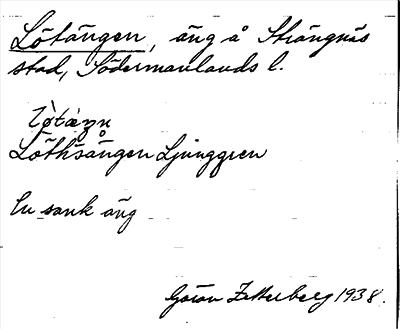 Lötängen, äng å Strängnäs
stad, Södermanlands l.
Löthsången Ljunggren
En sank äng
Göran Zetterberg 1938.